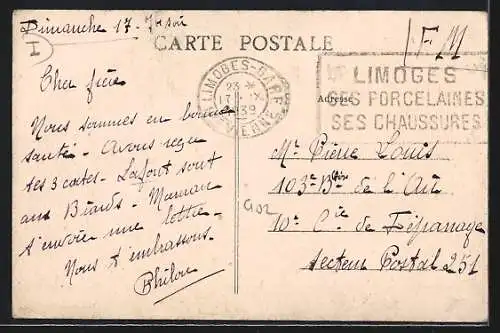 Dimanche 17 - 7h soir
I
CARTE POSTALE
F M
LIMOGES-GARE
23 *
17 IX
39
Hte VIENNE
LIMOGES
SES PORCELAINES
SES CHAUSSURES
Adresse
Cher frère
Nous sommes en bonne
santé - Avons reçu
tes 3 cartes - Lafont sont
aux Biards - Maman
t'envoie une lettre -
Nous t'embrassons.
Mr Pierre Louis
103e Bton de l'Air
10e Cie de Dépannage
Secteur Postal 251